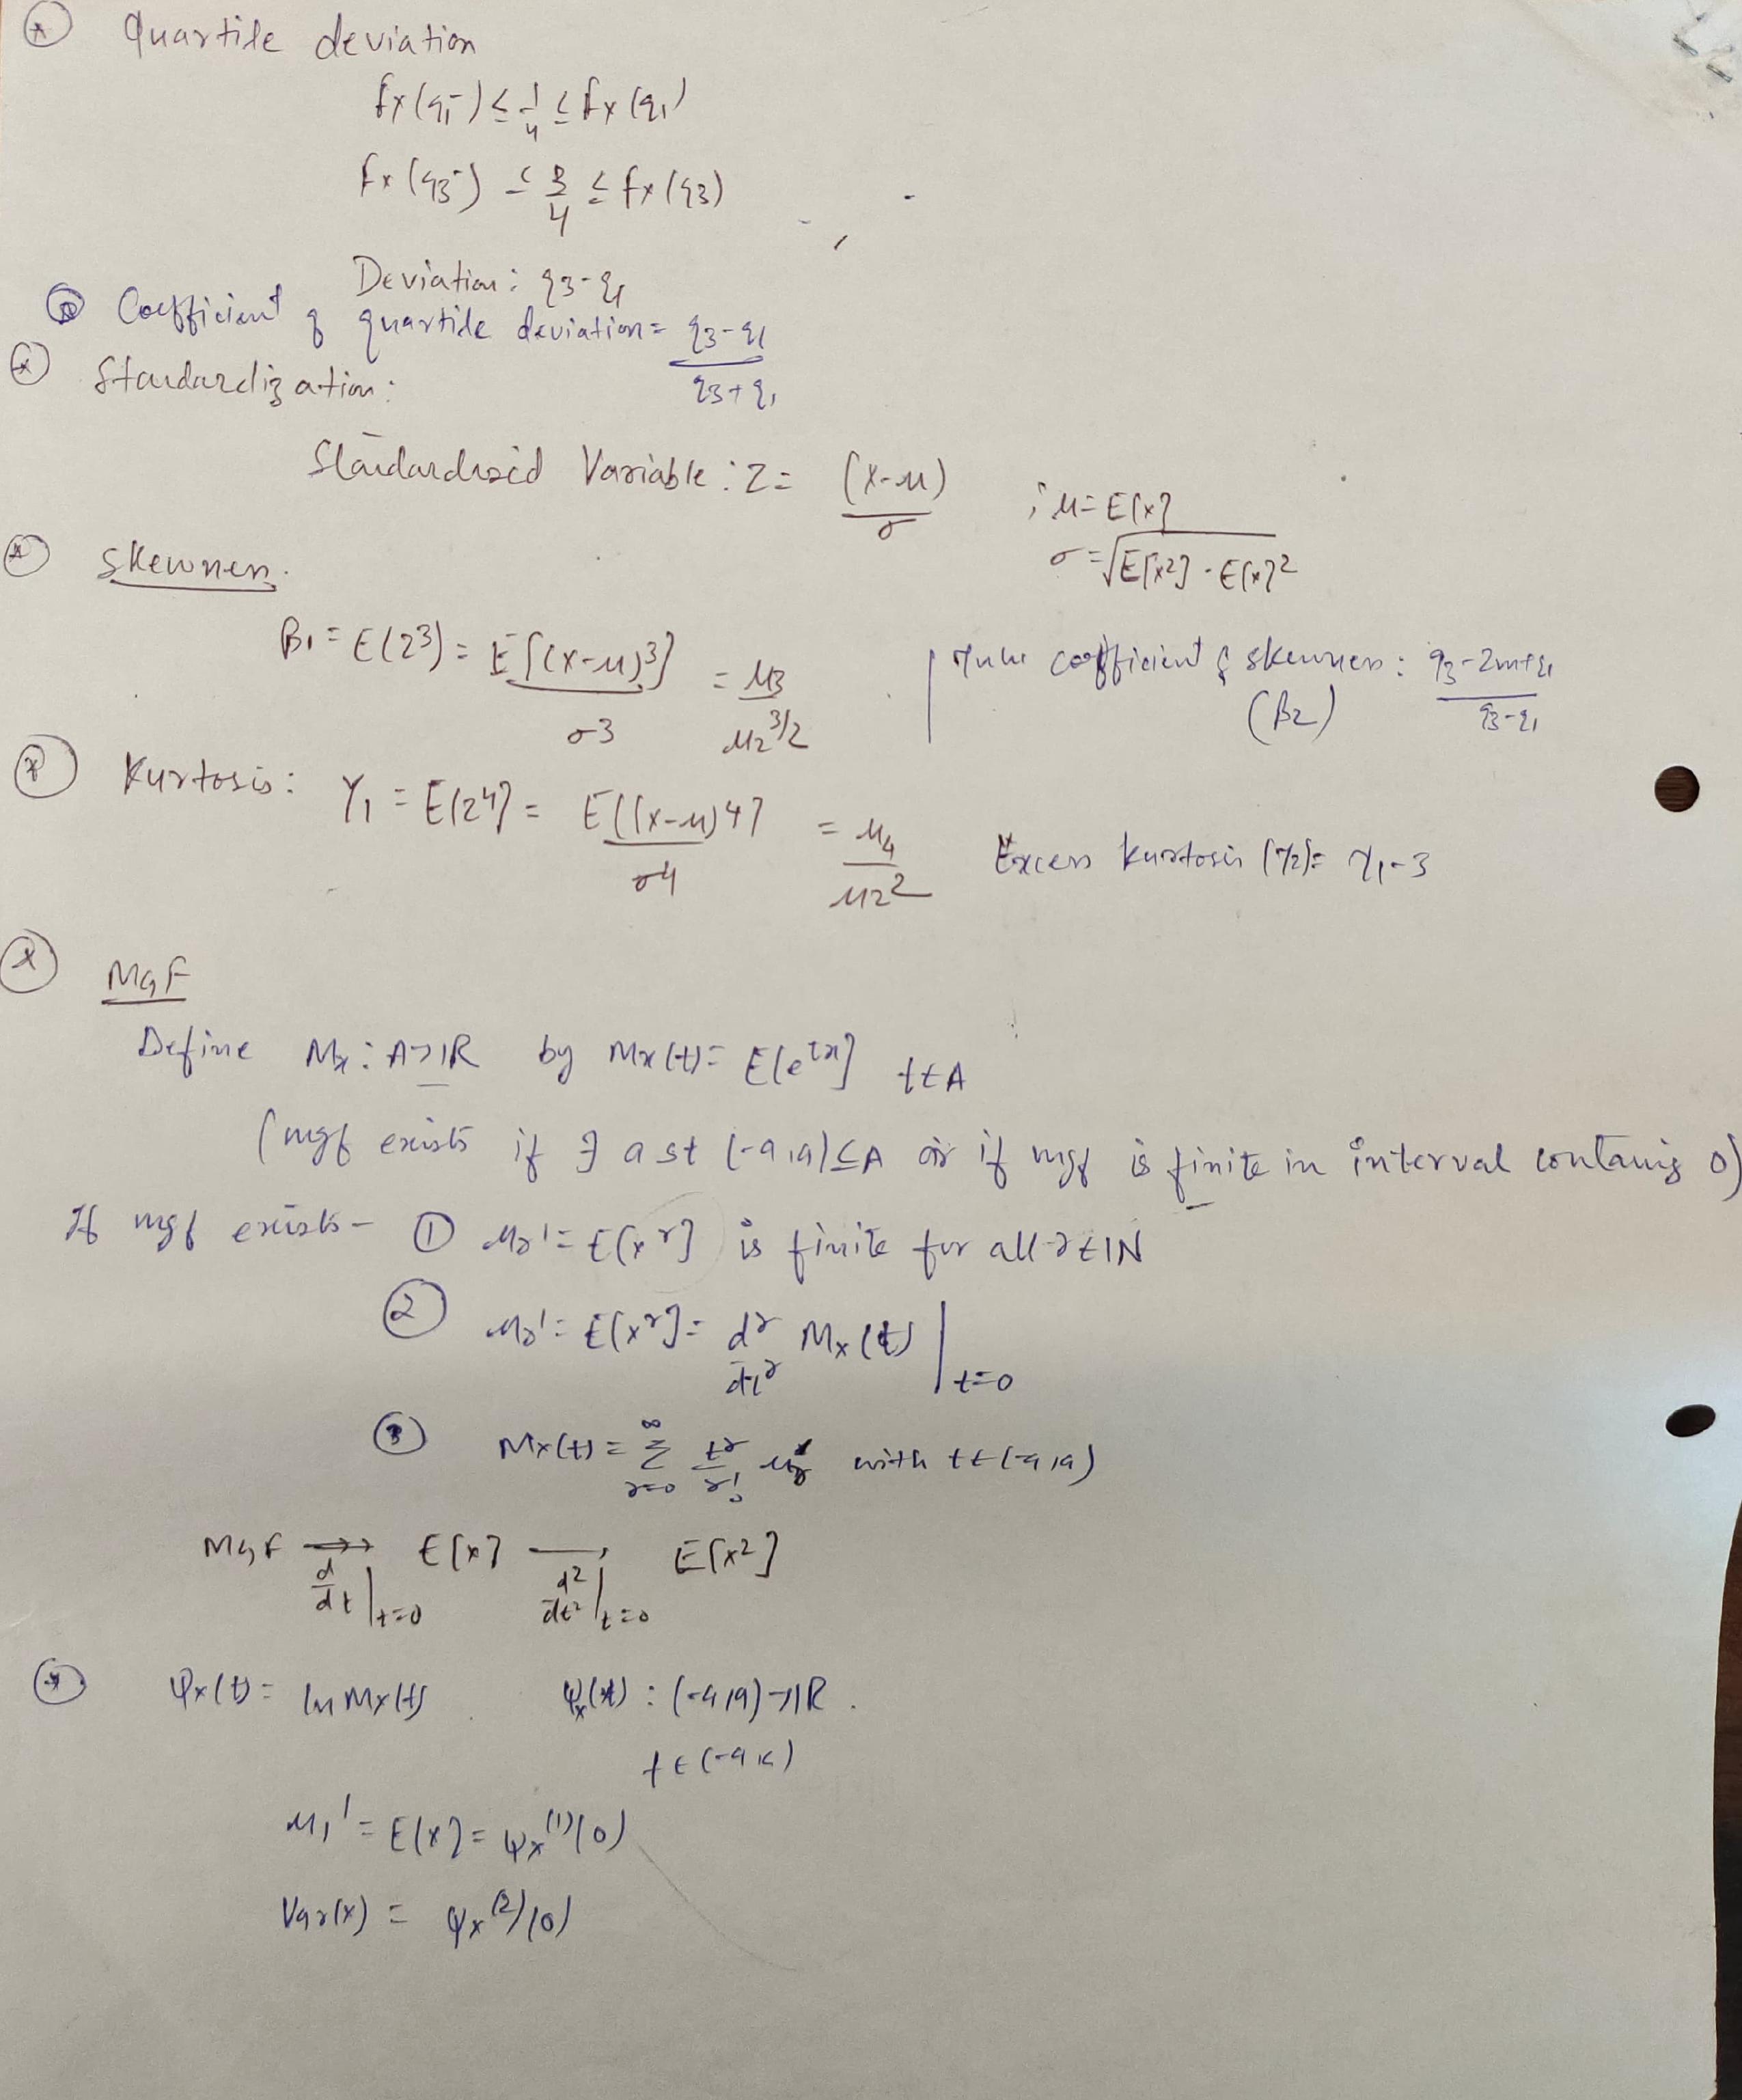 Quartile deviation
Fx(q1⁻) ≤ 1/4 ≤ Fx(q1)
Fx(q3⁻) ≤ 3/4 ≤ Fx(q3)
Deviation: q3-q1
Coefficient of quartile deviation = (q3-q1)/(q3+q1)
Standardization:
Standardized Variable: Z = (X-μ)/σ ; μ = E[X]
σ = √(E[X²] - E[X]²)
Skewness.
β1 = E(Z³) = E[(X-μ)³]/σ³ = μ3/μ2^(3/2) | Yule coefficient of skewness: (q3-2m+q1)/(q3-q1)
(β2)
Kurtosis: γ1 = E[Z⁴] = E[(X-μ)⁴]/σ⁴ = μ4/μ2² Excess kurtosis (γ2) = γ1-3
MGF
Define Mx: A→ℝ by Mx(t) = E[e^(tx)] t∈A
(mgf exists if ∃ a st (-a,a)⊆A or if mgf is finite in interval containing 0)
If mgf exists- ① μr' = E[X^r] is finite for all r∈ℕ
② μr' = E[X^r] = d^r/dt^r Mx(t) |t=0
③ Mx(t) = Σ_{r=0}^{∞} t^r/r! μr' with t∈(-a,a)
MGF →→ E[X] → E[X²]
d/dt |t=0 d²/dt² |t=0
Ψx(t) = ln Mx(t) Ψx(t): (-a,a)→ℝ.
t∈(-a,a)
μ1' = E[X] = Ψx^(1)(0)
Var(X) = Ψx^(2)(0)